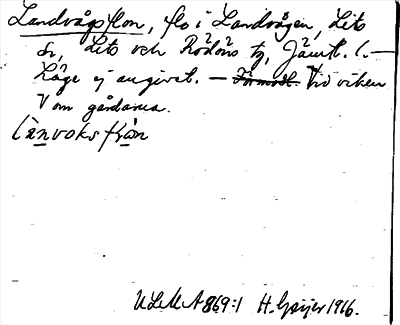 Landvågsflon, flo i Landvågen, Lits
sn, Lits och Rödöns tg, Jämtl. l. —
Läge ej angivet. — Vid viken
V om gårdarna.
lànvoksfràn
ULMA 869:1 H. Geijer 1916.